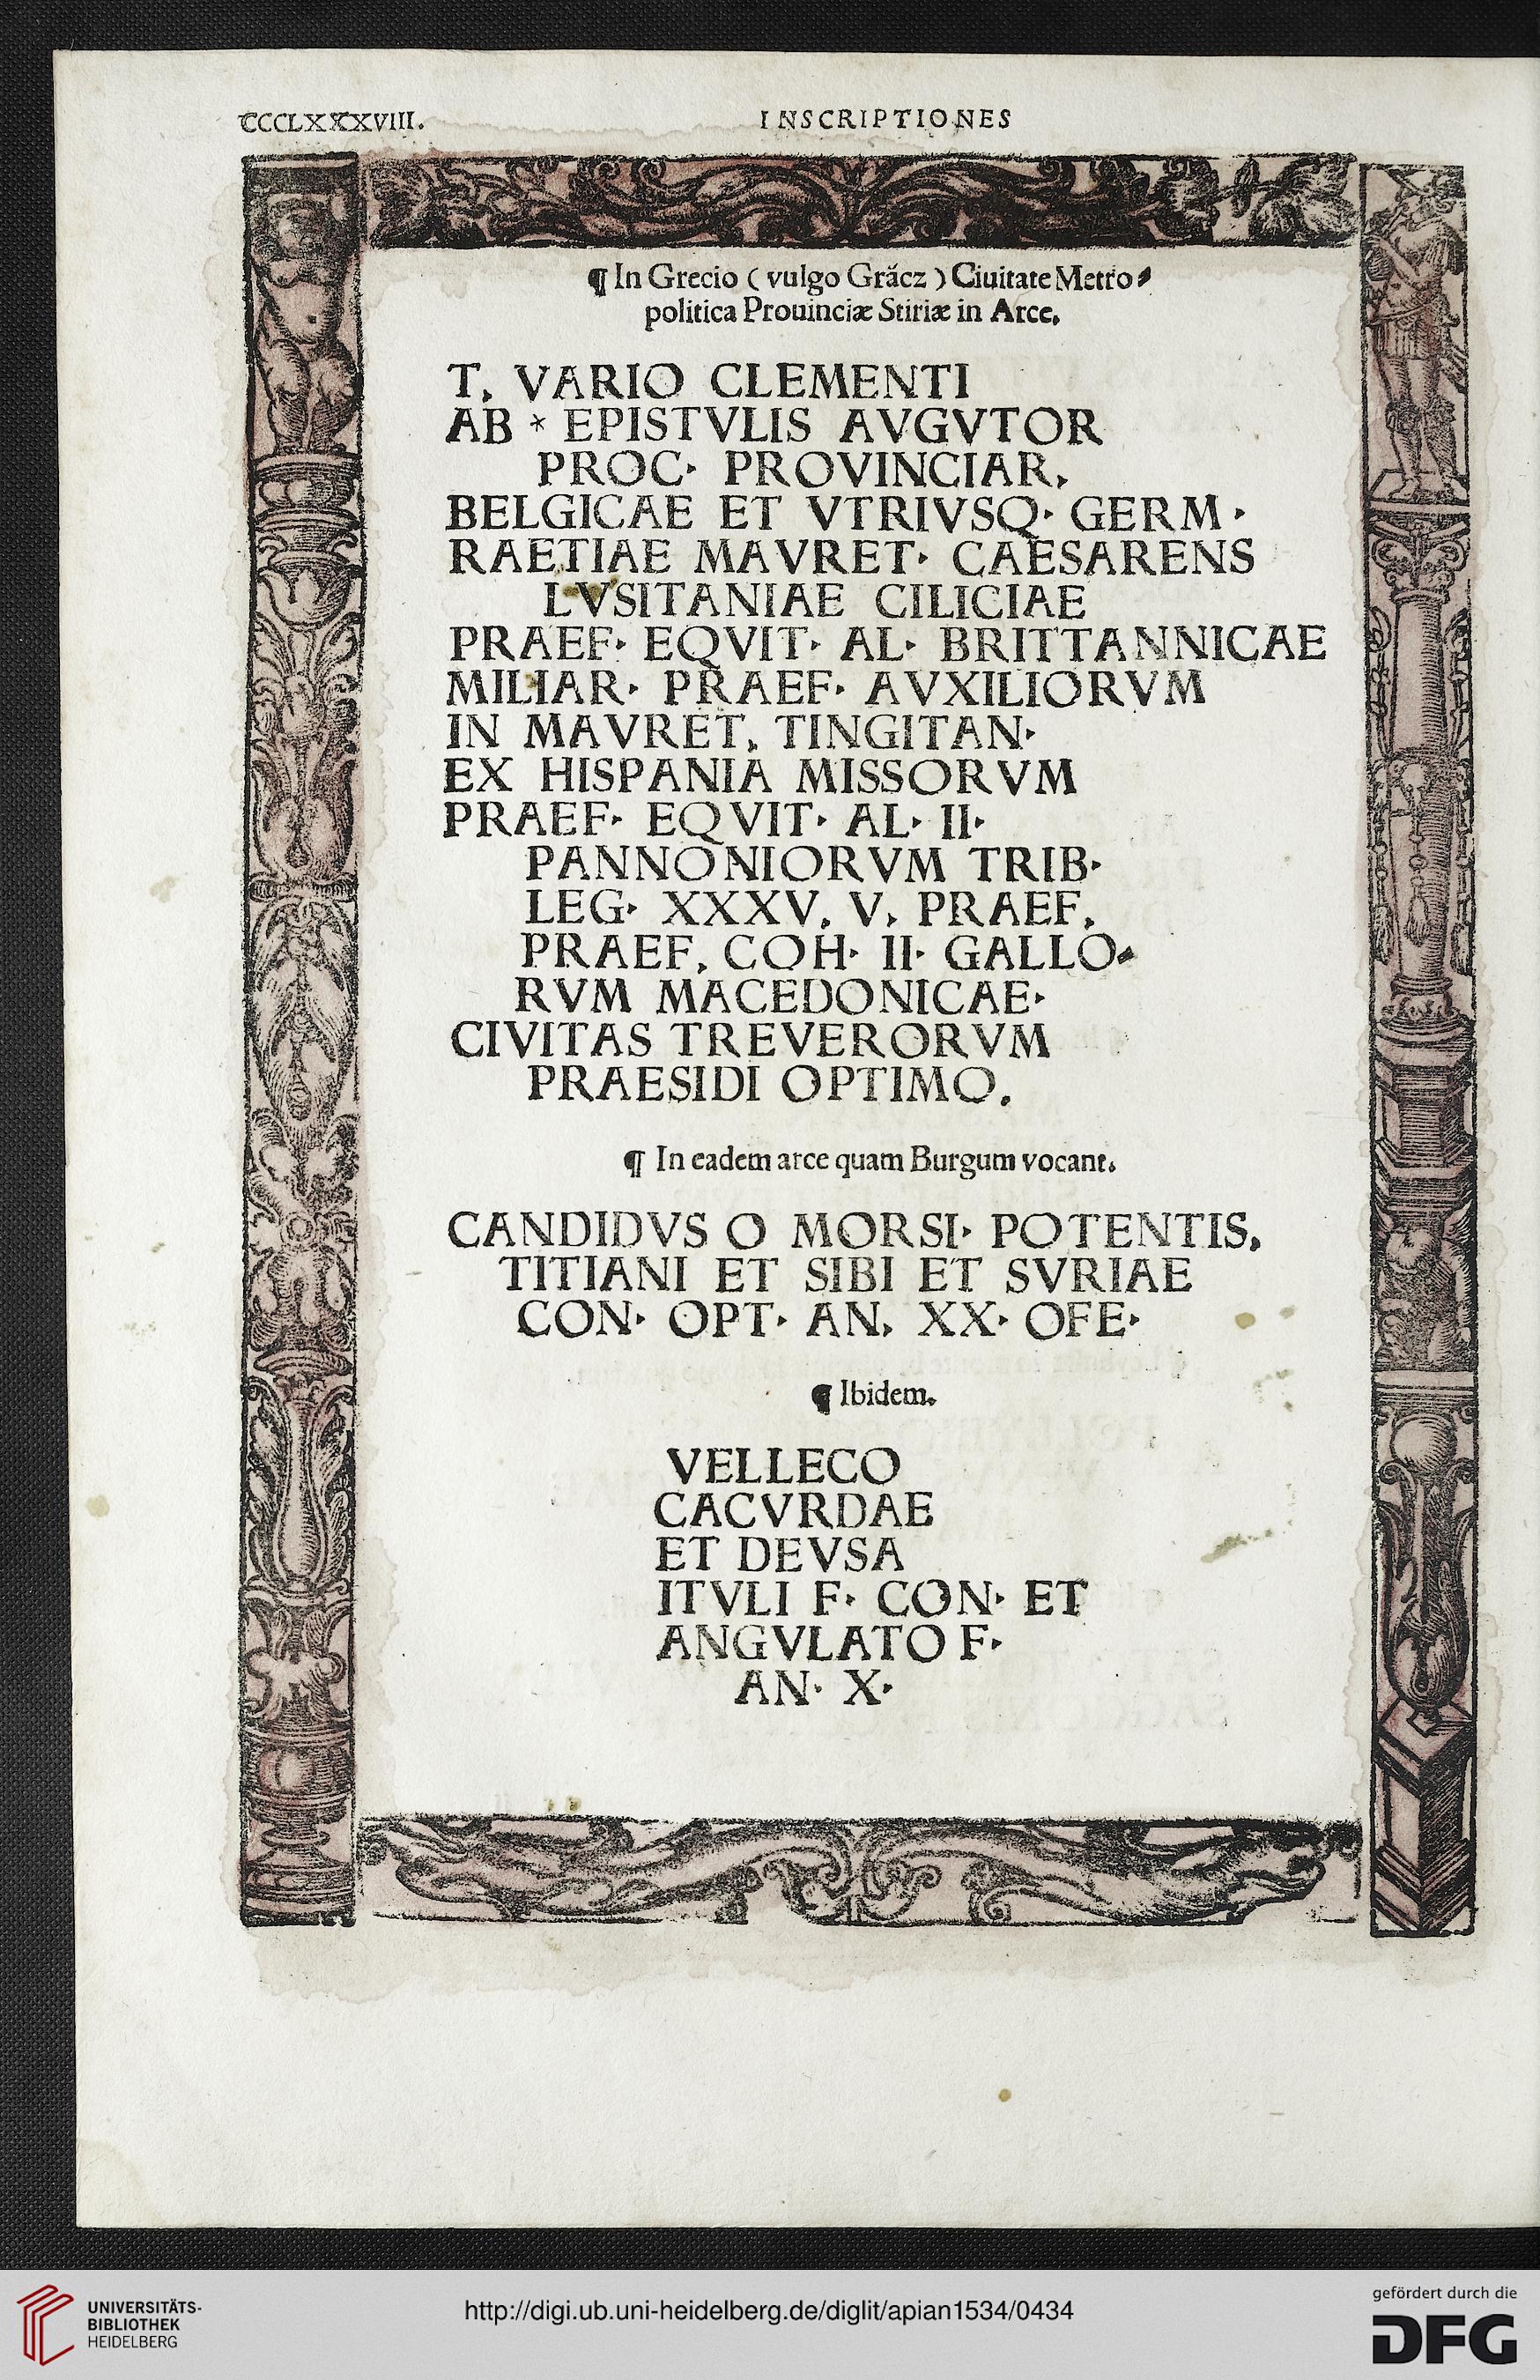 CCCLXXXVIII. INSCRIPTIONES
¶ In Grecio ( vulgo Gräcz ) Ciuitate Metro⸗
politica Prouinciæ Stiriæ in Arce.
T. VARIO CLEMENTI
AB * EPISTVLIS AVGVTOR
PROC· PROVINCIAR.
BELGICAE ET VTRIVSQ· GERM·
RAETIAE MAVRET· CAESARENS
LVSITANIAE CILICIAE
PRAEF· EQVIT· AL· BRITTANNICAE
MILIAR· PRAEF· AVXILIORVM
IN MAVRET. TINGITAN·
EX HISPANIA MISSORVM
PRAEF· EQVIT· AL· II·
PANNONIORVM TRIB·
LEG· XXXV. V. PRAEF.
PRAEF. COH· II· GALLO⸗
RVM MACEDONICAE·
CIVITAS TREVERORVM
PRAESIDI OPTIMO.
¶ In eadem arce quam Burgum vocant.
CANDIDVS O MORSI· POTENTIS.
TITIANI ET SIBI ET SVRIAE
CON· OPT· AN. XX· OFE·
¶ Ibidem.
VELLECO
CACVRDAE
ET DEVSA
ITVLI F· CON· ET
ANGVLATO F·
AN· X·
UNIVERSITÄTS-
BIBLIOTHEK
HEIDELBERG
http://digi.ub.uni-heidelberg.de/diglit/apian1534/0434
gefördert durch die
DFG